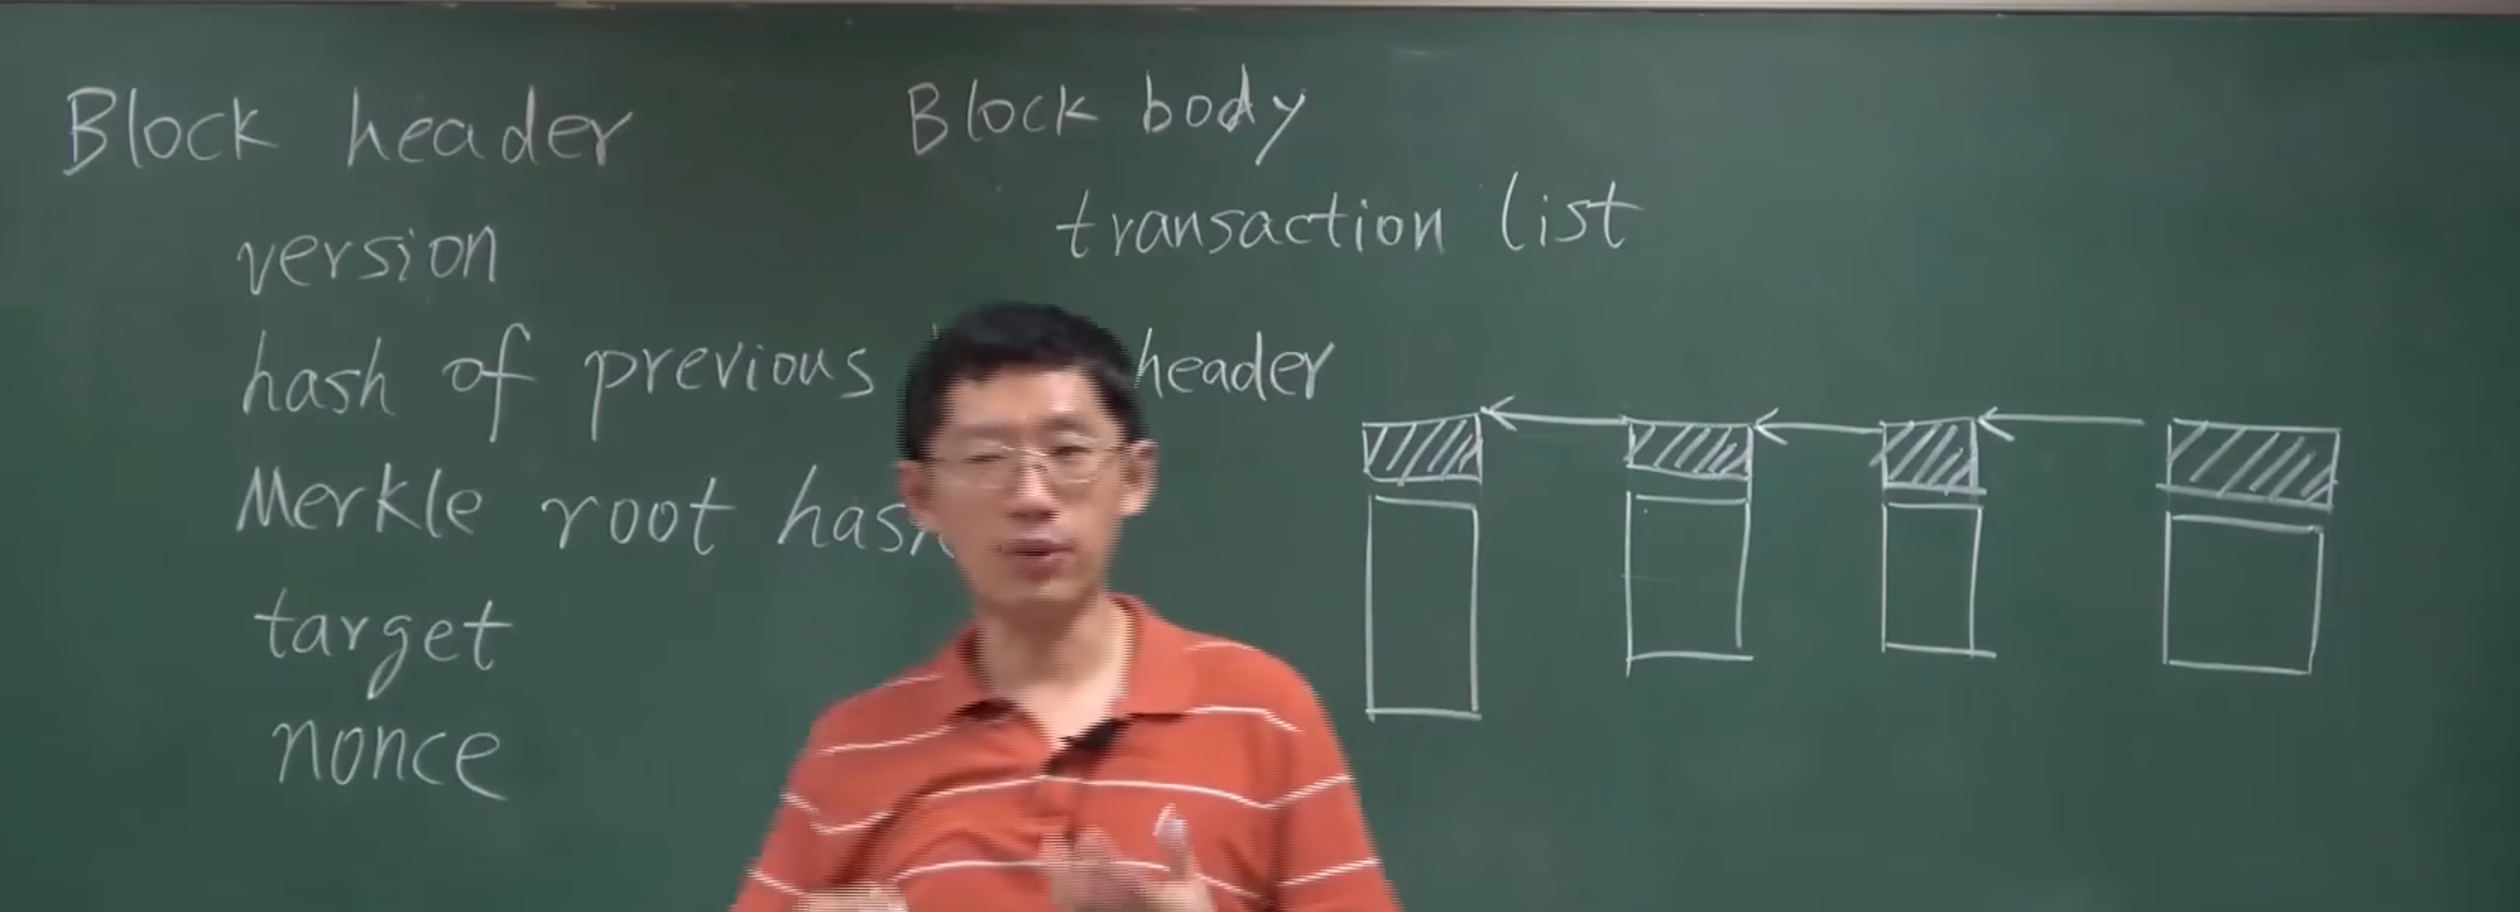 Block header
version
hash of previous header
Merkle root hash
target
nonce
Block body
transaction list